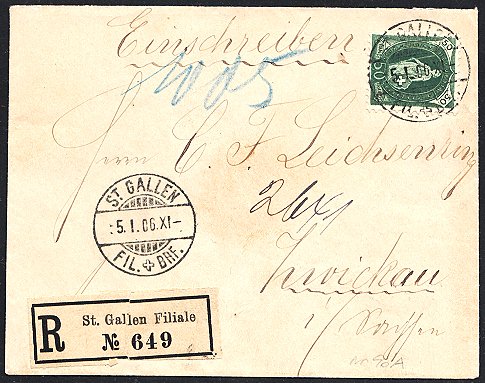 Einschreiben.
1005
ST. GALLEN
5.I.06
FIL.
50
Herrn C. F. Leichsenring
Zwickau
i/ Sachsen
ST. GALLEN
5.I.06.XI–
FIL. BRF.
R St. Gallen Filiale
№ 649